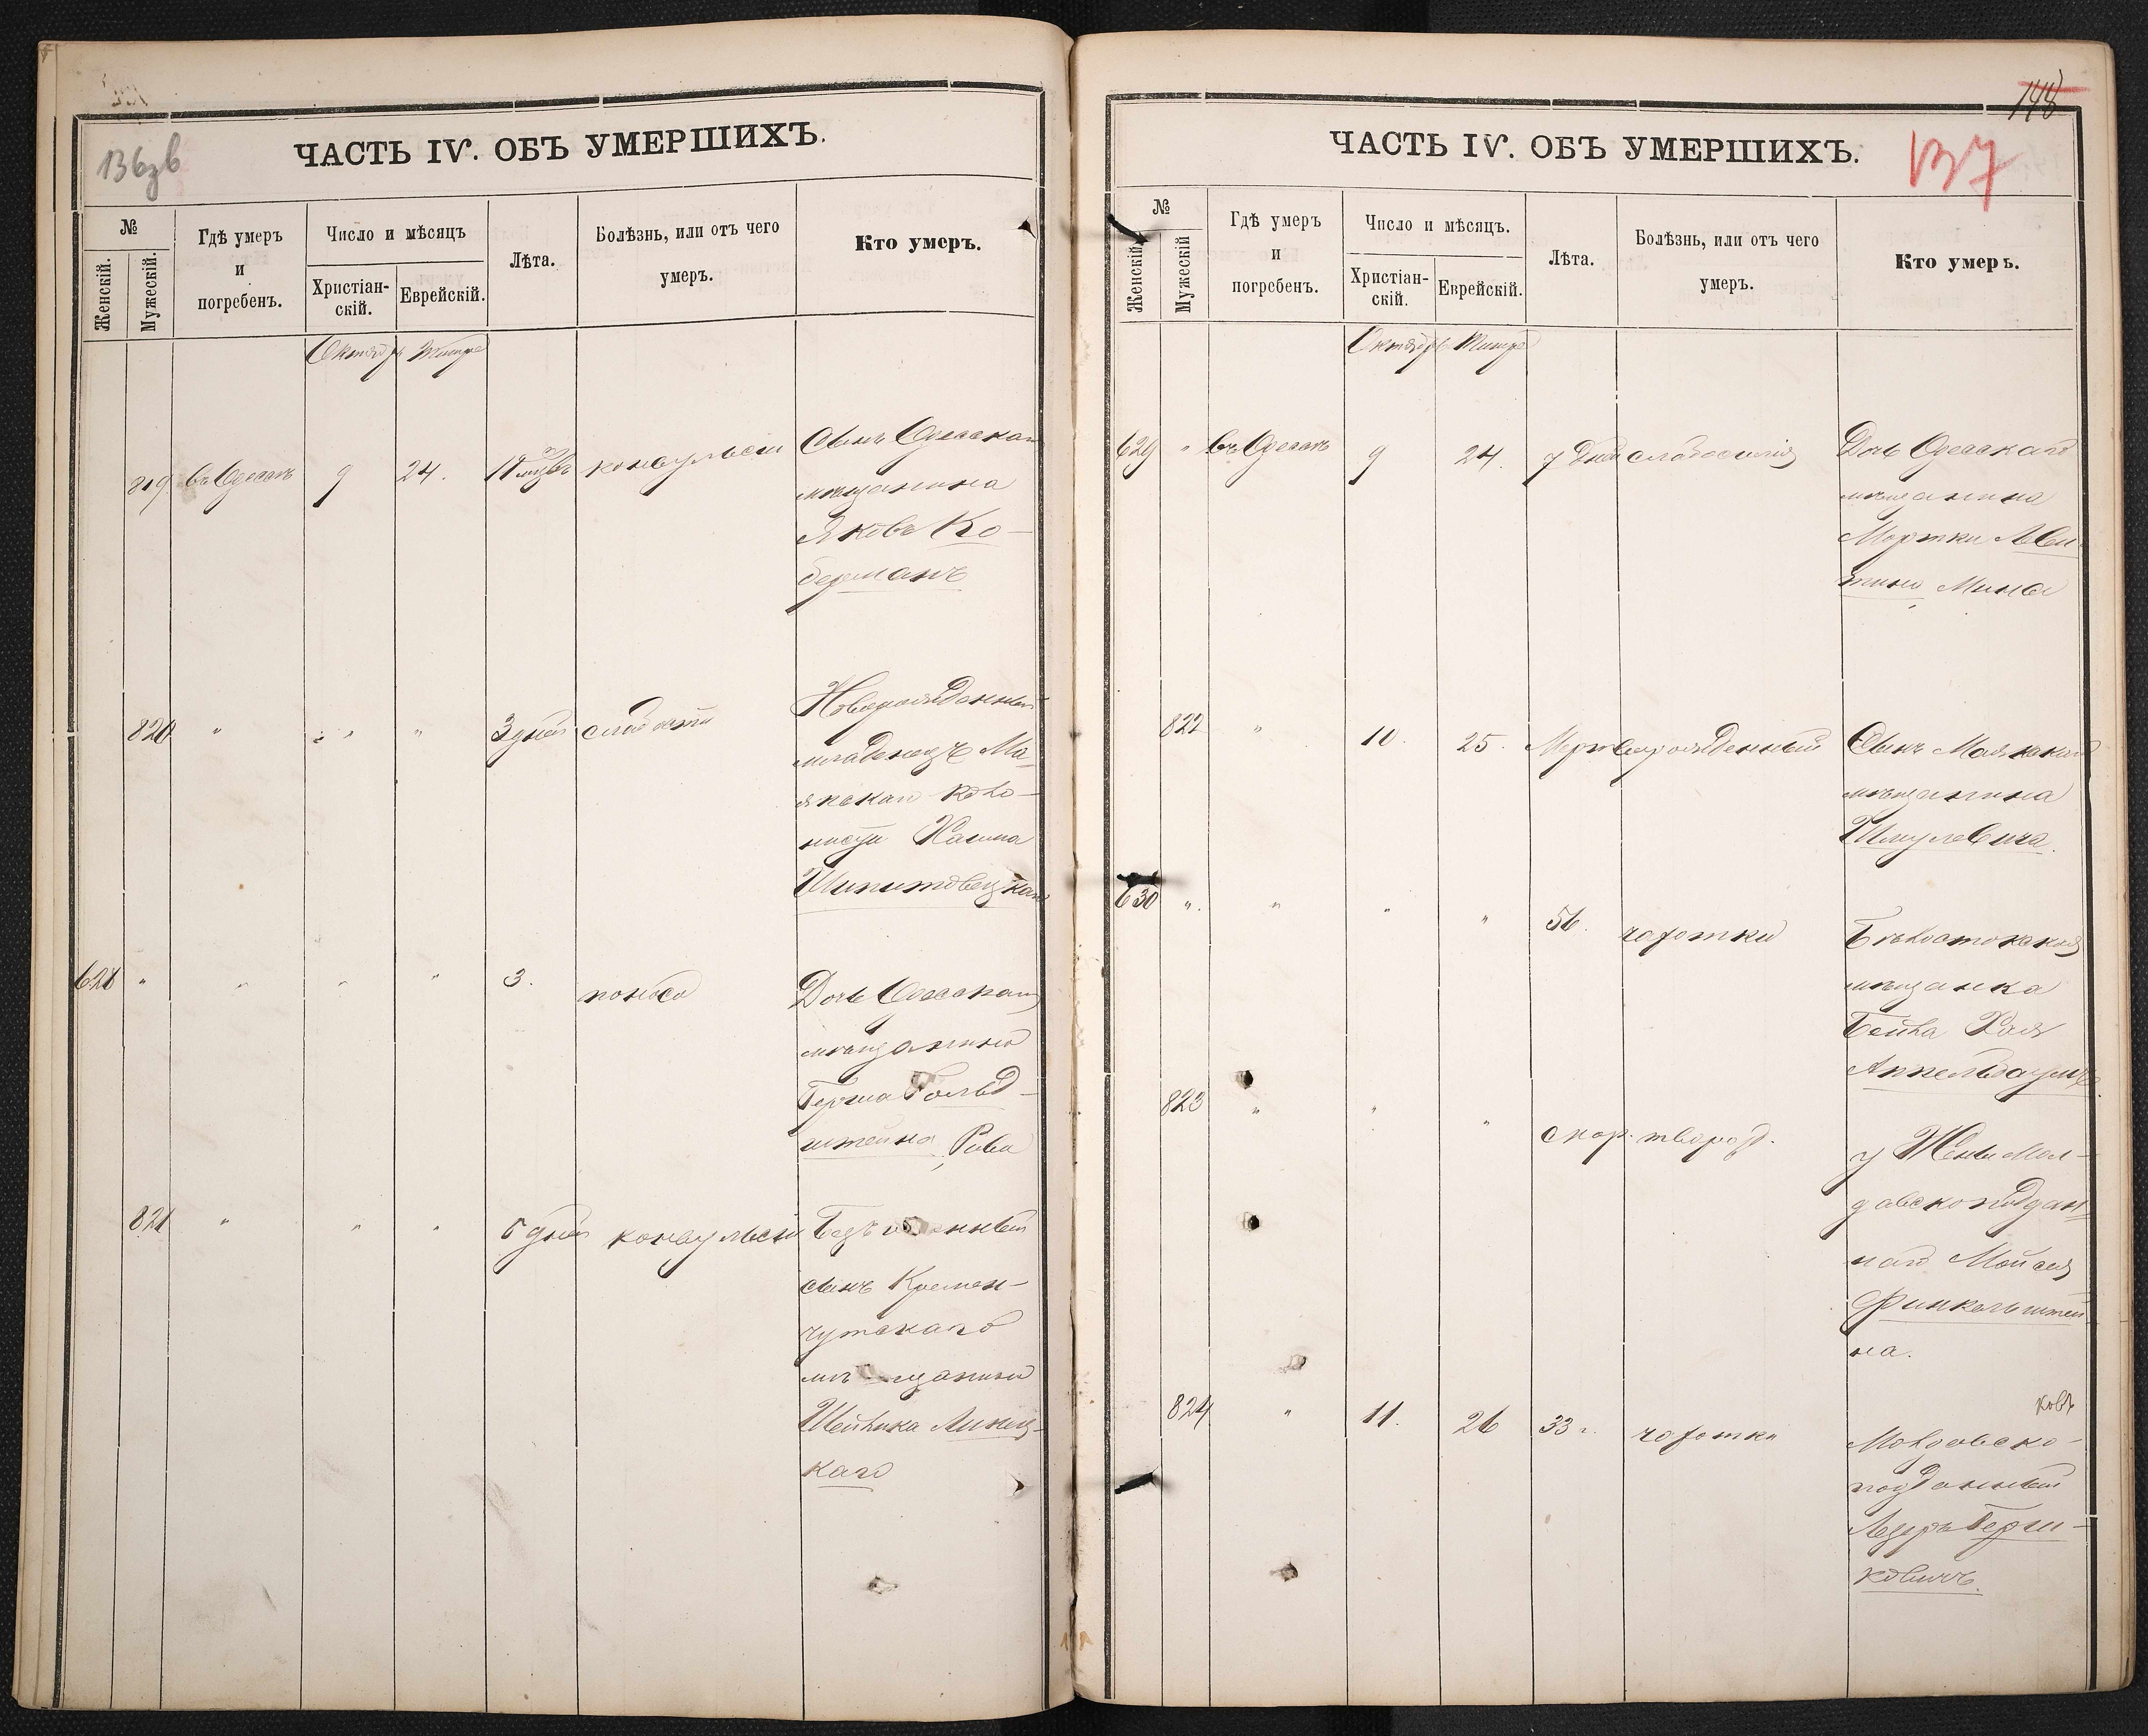 136зв
ЧАСТЬ IV. ОБЪ УМЕРШИХЪ.
№
Женскій.
Мужескій.
Гдѣ умеръ
и
погребенъ.
Число и мѣсяцъ
Христіан-
скій.
Еврейскій.
Лѣта.
Болѣзнь, или отъ чего
умеръ.
Кто умеръ.
Октябрь Тишре
819 въ Одессѣ 9 24. конвульсіи Сынъ Одесскаго
мѣщанина
Яковъ Ко-
берманъ
820 " " " " 3 дней слабости Новорожденный
младенецъ Ма-
якскаго коло-
ниста Хаима
Шипитовецкаго
628 " " " " 3. поноса Дочь Одесскаго
мѣщанина
Герша Гольд-
штейна, Рива
821 " " " 5 дней конвульсіи
сынъ Кремен-
чугскаго
мѣщанина
Шейлика Липец-
каго
148
137
ЧАСТЬ IV. ОБЪ УМЕРШИХЪ.
№
Женскій.
Мужескій
Гдѣ умеръ
и
погребенъ.
Число и мѣсяцъ.
Христіан-
скій.
Еврейскій.
Лѣта.
Болѣзнь, или отъ чего
умеръ.
Кто умеръ.
Октябрь Тишре
629 " въ Одессѣ 9 24. 7 дней слабосилія Дочь Одесскаго
мѣщанина
Мортки Леви
тина, Мина
822 " 10. 25. Мертворожденный Сынъ Маякскаго
мѣщанина
Шмулевича.
630 " " " " 56. чахотки Бѣлостокская
мѣщанка
Бейла Хая
Аппельбаумъ.
823 " " " скор. твор. у Жены Мол-
давскоподдан-
наго Мойсея
Финкельштей
на.
824 " 11. 26 33 г. чахотки Молдавско-
ковъ
подданный
Лезеръ Герш-
ковичъ.